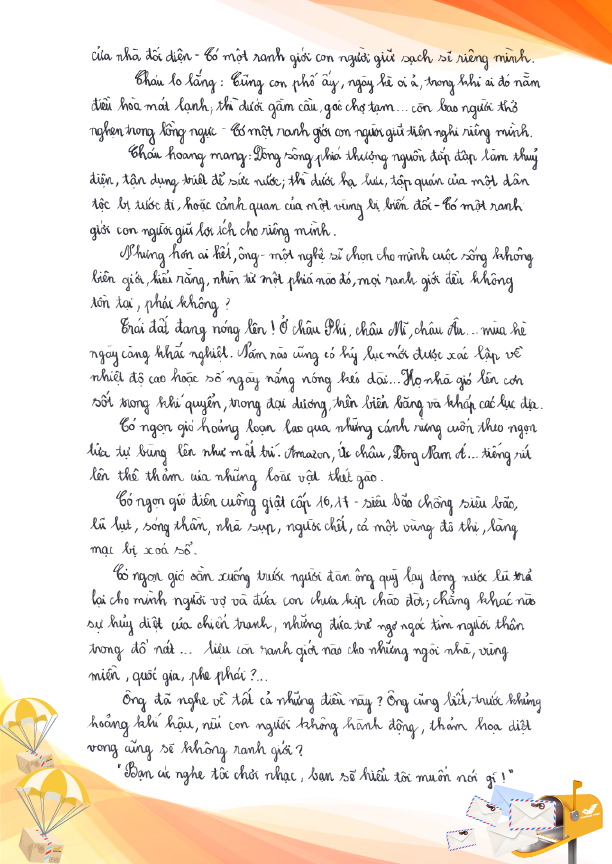 cửa nhà đối diện - Có một ranh giới con người giữ sạch sẽ riêng mình.
Cháu lo lắng: Cũng con phố ấy, ngày hè oi ả, trong khi ai đó nằm
điều hòa mát lạnh; thì dưới gầm cầu, góc chợ tạm... còn bao người thở
nghẹn trong lồng ngực - Có một ranh giới con người giữ tiện nghi riêng mình.
Cháu hoang mang: Dòng sông phía thượng nguồn đắp đập làm thuỷ
điện, tận dụng triệt để sức nước; thì dưới hạ lưu, tập quán của một dân
tộc bị tước đi, hoặc cảnh quan của một vùng bị biến đổi - Có một ranh
giới con người giữ lợi ích cho riêng mình.
Nhưng hơn ai hết, ông - một nghệ sĩ chọn cho mình cuộc sống không
biên giới, hiểu rằng, nhìn từ một phía nào đó, mọi ranh giới đều không
tồn tại, phải không?
Trái đất đang nóng lên! Ở châu Phi, châu Mĩ, châu Âu... mùa hè
ngày càng khắc nghiệt. Năm nào cũng có kỷ lục mới được xác lập về
nhiệt độ cao hoặc số ngày nắng nóng kéo dài... Họ nhà gió lên cơn
sốt trong khí quyển, trong đại dương, trên biển băng và khắp các lục địa.
Có ngọn gió hoảng loạn lao qua những cánh rừng cuốn theo ngọn
lửa tự bùng lên như mất trí. Amazon, Úc châu, Đông Nam Á... tiếng rít
lên thê thảm của những loài vật thét gào.
Có ngọn gió điên cuồng giật cấp 16,17 - siêu bão chồng siêu bão,
lũ lụt, sóng thần, nhà sụp, người chết, cả một vùng đô thị, làng
mạc bị xoá sổ.
Có ngọn gió sần xuống trước người đàn ông quỳ lạy dòng nước lũ trả
lại cho mình người vợ và đứa con chưa kịp chào đời; chẳng khác nào
sự hủy diệt của chiến tranh, những đứa trẻ ngơ ngác tìm người thân
trong đổ nát... liệu còn ranh giới nào cho những ngôi nhà, vùng
miền, quốc gia, phe phái?...
Ông đã nghe về tất cả những điều này? Ông cũng biết, trước khủng
hoảng khí hậu, nếu con người không hành động, thảm họa diệt
vong cũng sẽ không ranh giới?
"Bạn cứ nghe tôi chơi nhạc, bạn sẽ hiểu tôi muốn nói gì!"